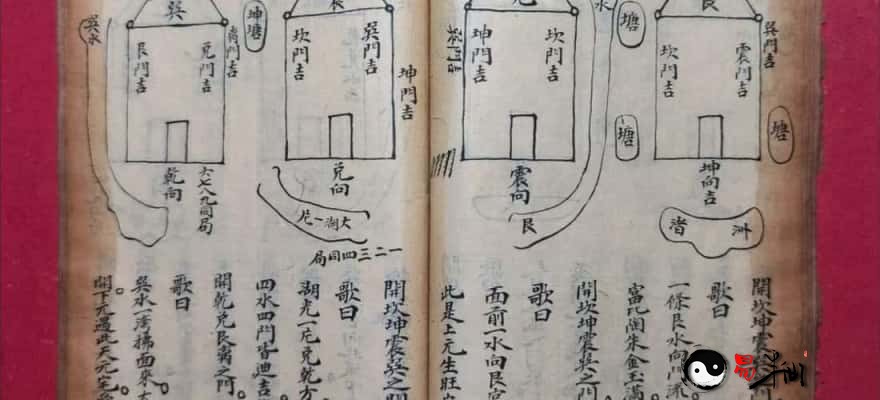 艮
吳門吉
震門吉
坎門吉
塘
坤向吉
洲
渚
塘
塘
水
坎門吉
坤門吉
震向
艮
坤門吉
吳門吉
坎門吉
兌向
大湖一片
一二三四同局
坤塘
吳
離門吉
兌門吉
艮門吉
吳水
乾向
六七八九同局
開坎坤震吳之門
歌曰
一條艮水向門流
富比陶朱金玉滿
開坎坤震吳之門
歌曰
面前一水向艮宮
此是上元生旺
開坎坤震吳之門
歌曰
湖光一片兌乾方
四水四門皆迪吉
開乾兌艮離之門
歌曰
吳水一湾拂面來
開下元遇此大元
易